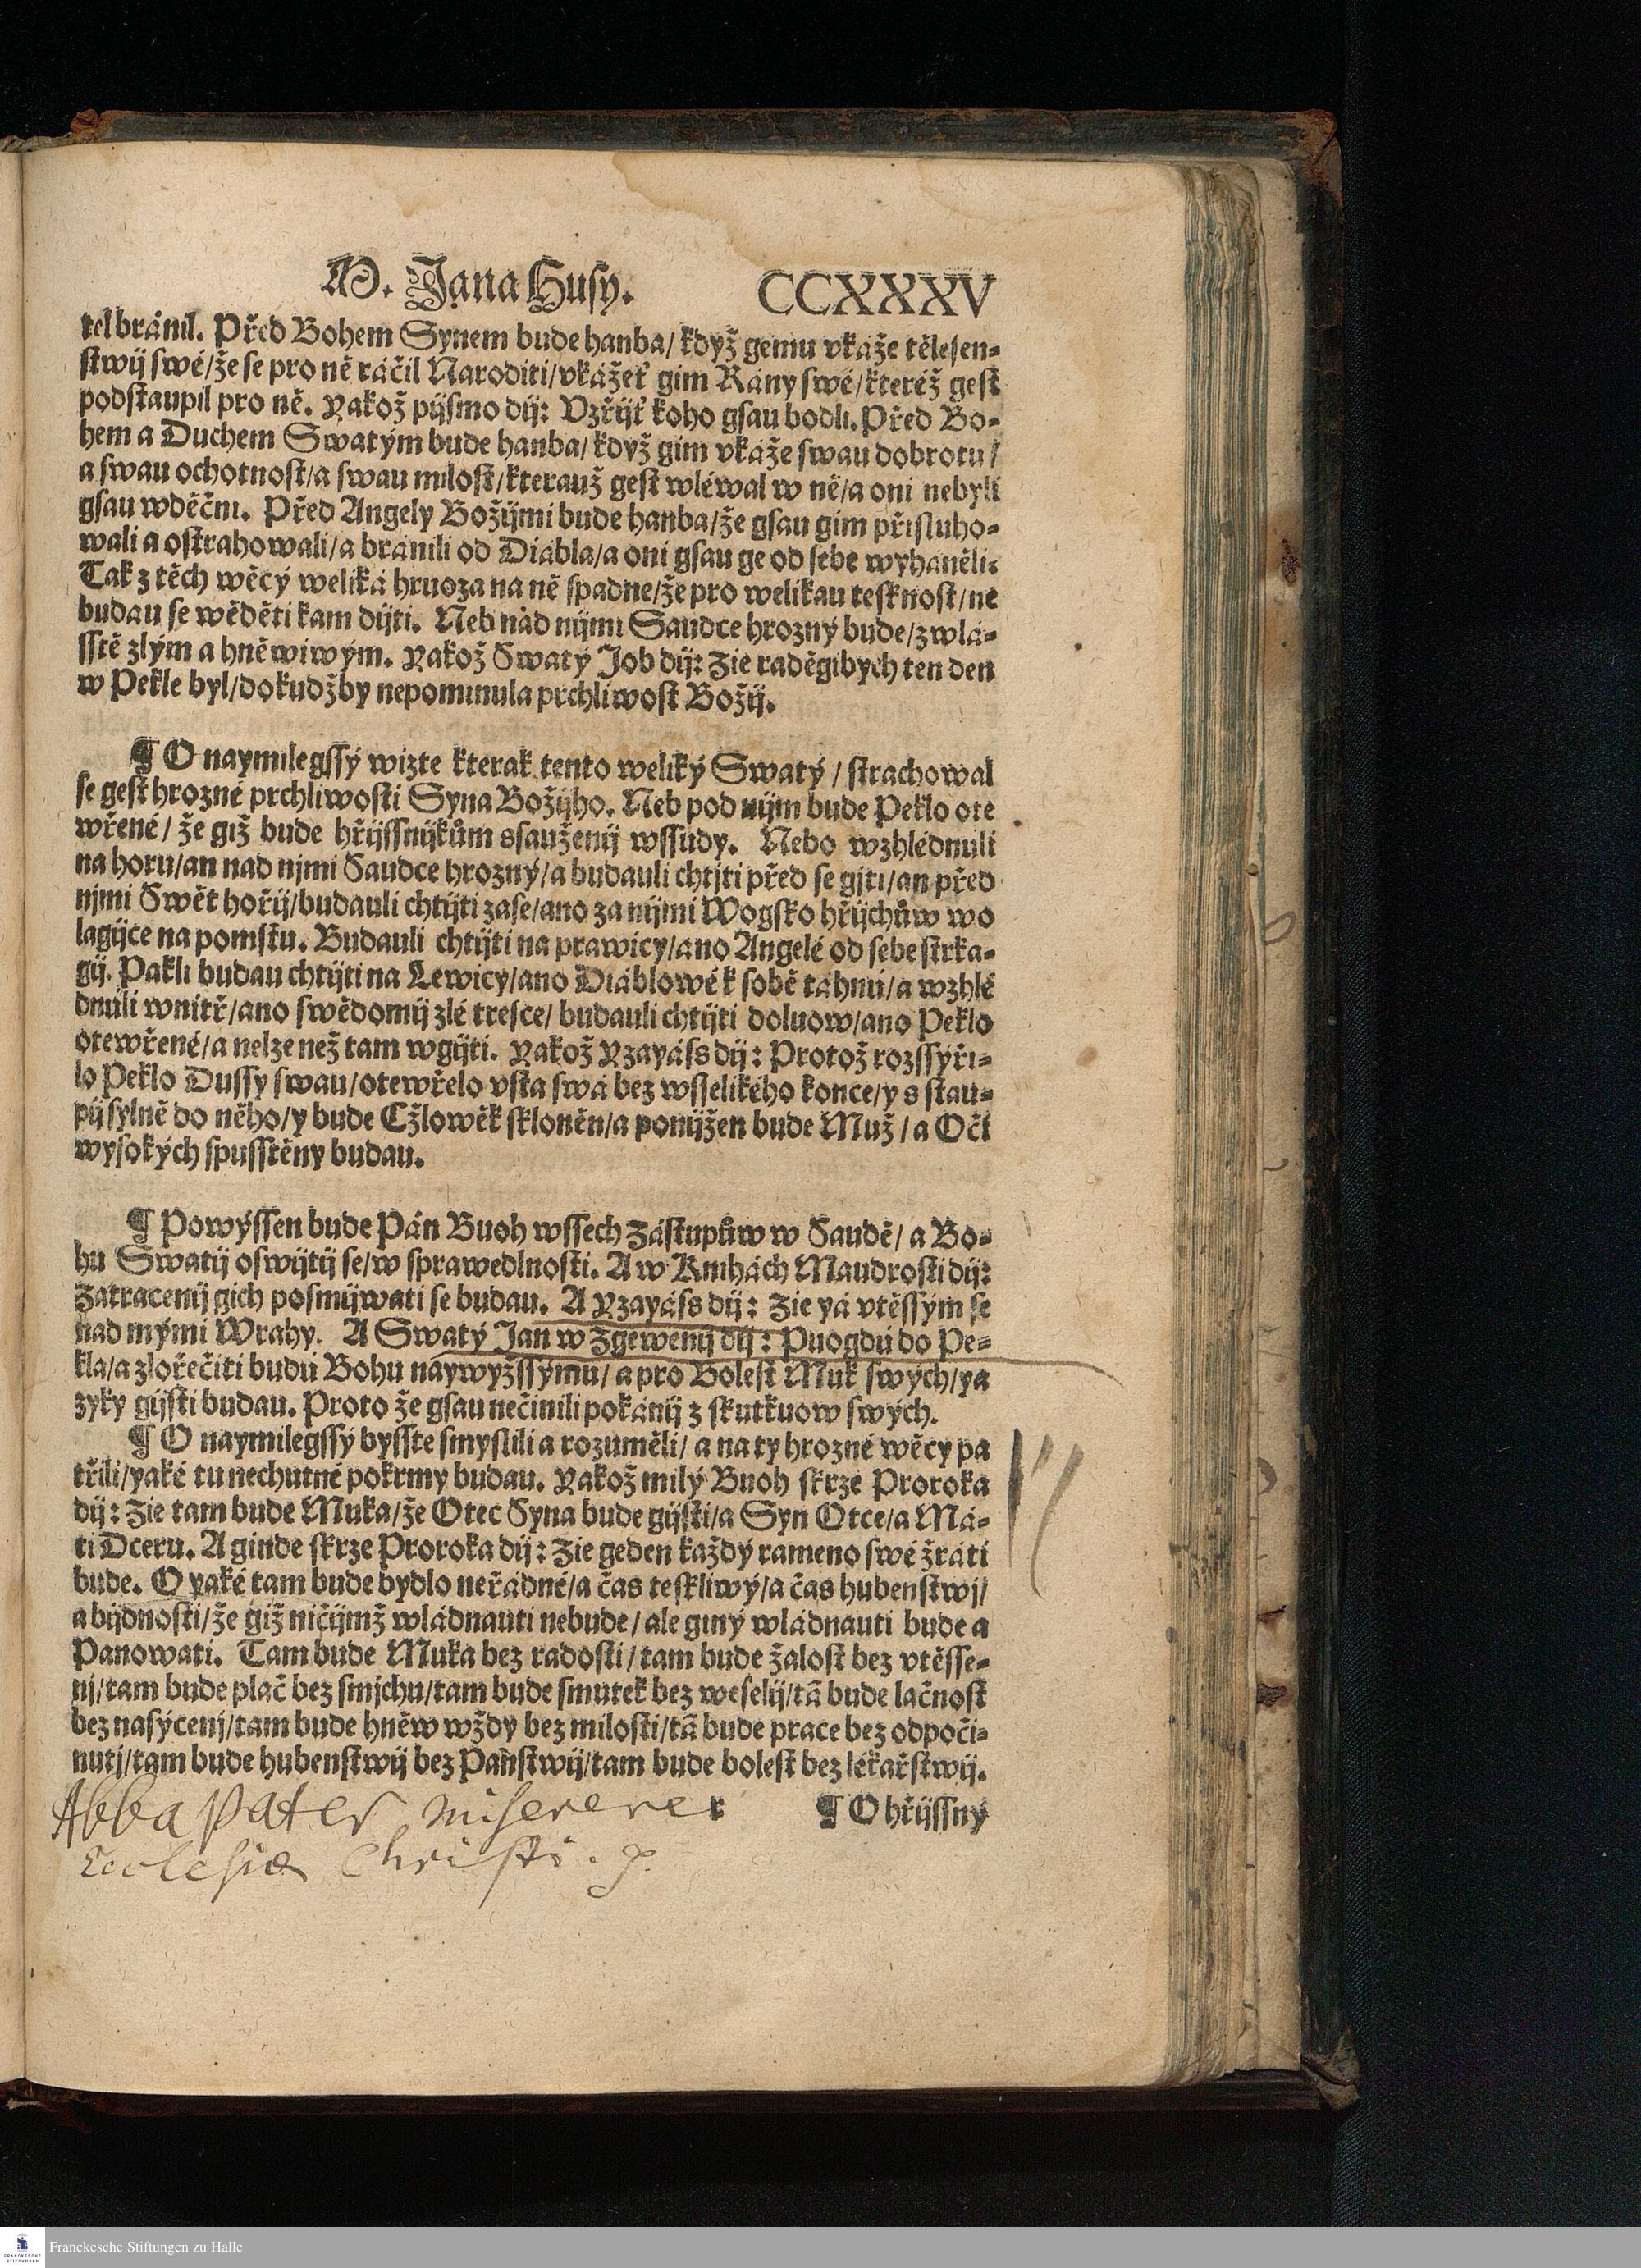 M. Jana Husy. CCXXXV
tel bránil. Před Bohem Synem bude hanba/ když gemu vkáže tělesen-
stwij swé/že se pro ně ráčil Naroditi/vkážeť gim Rány swé/kteréž gest
podstaupil pro ně. Yakož pijsmo dij: Vzřijť koho gsau bodli. Před Bo-
hem a Duchem Swatým bude hanba/ když gim vkáže swau dobrotu/
a swau ochotnost/a swau milost/kterauž gest wléwal w ně/a oni nebyli
gsau wděčni. Před Angely Božijmi bude hanba/že gsau gim přisluho-
wali a ostrahowali/a bránili od Diábla/a oni gsau ge od sebe wyháněli.
Tak z těch wěcý weliká hruoza na ně spadne/že pro welikau tesknost/ne
budau se wěděti kam dijti. Neb nad nijmi Saudce hrozný bude/zwlá-
sstě zlým a hněwiwým. Yakož Swatý Job dij: Zie raděgibych ten den
w Pekle byl/dokudžby nepominula prchliwost Božij.
¶ O naymilegssý wizte kterak tento weliký Swatý/ strachowal
se gest hrozné prchliwosti Syna Božijho. Neb pod nijm bude Peklo ote
wřené/ že giž bude hřijssnijkům ssauženij wssudy. Nebo wzhlédnuli
na horu/an nad njmi Saudce hrozný/a budauli chtjti před se gjti/an před
njmi Swět hořij/budauli chtijti zase/ano za nijmi Wogsko hřijchůw wo
lagijce na pomstu. Budauli chtijti na prawicy/ano Angelé od sebe strka-
gij. Pakli budau chtijti na Lewicy/ano Diáblowé k sobě táhnú/a wzhlé
dnuli wnitř/ano swědomij zlé tresce/ budauli chtijti doluow/ano Peklo
otewřené/a nelze než tam wgijti. Yakož Yzayáss dij: Protož rozssýři-
lo Peklo Dussy swau/otewřelo vsta swá bez wsselikého konce/y s stau-
pij sylně do něho/y bude Cžlowěk skloněn/a ponijžen bude Muž/a Oči
wysokých spusstěny budau.
¶ Powýssen bude Pán Buoh wssech Zástupůw w Saudě/ a Bo-
hu Swatij oswijtij se/w sprawedlnosti. A w Knihách Maudrosti dij:
Zatracenij gich posmijwati se budau. A Yzayáss dij: Zie yá vtěssým se
nad mými Wrahy. A Swatý Jan w Zgewenij dij: Puogdú do Pe-
kla/a zlořečiti budú Bohu naywyžssýmu/ a pro Bolest Muk swých/ya
zyky gijsti budau. Proto že gsau nečinili pokánij z skutkuow swých.
¶ O naymilegssý bysste smyslili a rozuměli/ a na ty hrozné wěcy pa
třili/yaké tu nechutné pokrmy budau. Yakož milý Buoh skrze Proroka
dij: Zie tam bude Muka/že Otec Syna bude gijsti/a Syn Otce/a Má-
ti Dceru. A ginde skrze Proroka dij: Zie geden každý rameno swé žráti
bude. O yaké tam bude bydlo neřádné/a čas teskliwý/a čas hubenstwj/
a bijdnosti/že giž ničijmž wládnauti nebude/ ale giný wládnauti bude a
Panowati. Tam bude Muka bez radosti/ tam bude žalost bez vtěsse-
nj/tam bude pláč bez smjchu/tam bude smutek bez weselij/tā bude lačnost
bez nasýcenj/tam bude hněw wždy bez milosti/tā bude prace bez odpoči-
nutj/tam bude hubenstwij bez Panstwij/tam bude bolest bez lékařstwij.
¶ O hřijssný
Abba pater miserere
Ecclesiæ Christi.
Franckesche Stiftungen zu Halle
FRANCKESCHE
STIFTUNGEN